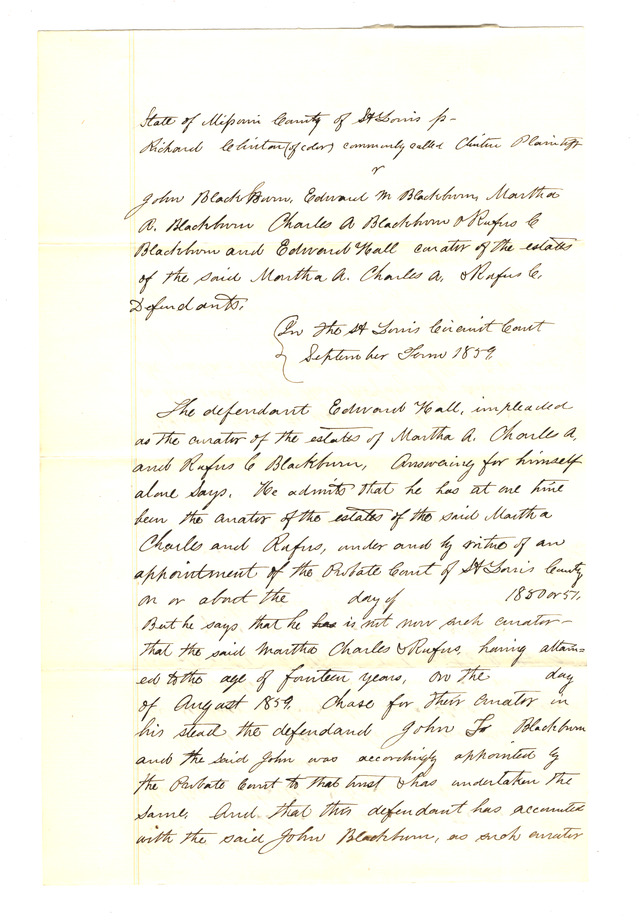 State of Missouri County of St Louis ss
Richard Clinton (of color) commonly called Clinton Plaintiff
v
John Blackburn, Edward M Blackburn, Martha
A. Blackburn Charles A Blackburn & Rufus C
Blackburn and Edward Hall curator of the estates
of the said Martha A. Charles A. & Rufus C.
Defendants.
In the St Louis Circuit Court
September Term 1859.
The defendant Edward Hall, impleaded
as the curator of the estates of Martha A. Charles A.
and Rufus C Blackburn, Answering for himself
alone says. He admits that he has at one time
been the curator of the estates of the said Martha
Charles and Rufus, under and by virtue of an
appointment of the Probate Court of St Louis County
on or about the day of 1850 or 51.
But he says that he has is not now such curator-
that the said Martha Charles & Rufus, having attain=
ed to the age of fourteen years, on the day
of August 1859. Chose for their curator in
his stead the defendand John Blackburn
and the said John was accordingly appointed by
the Probate Court to that trust & has undertaken the
same. And that this defendant has accounted
with the said John Blackburn, as such curator